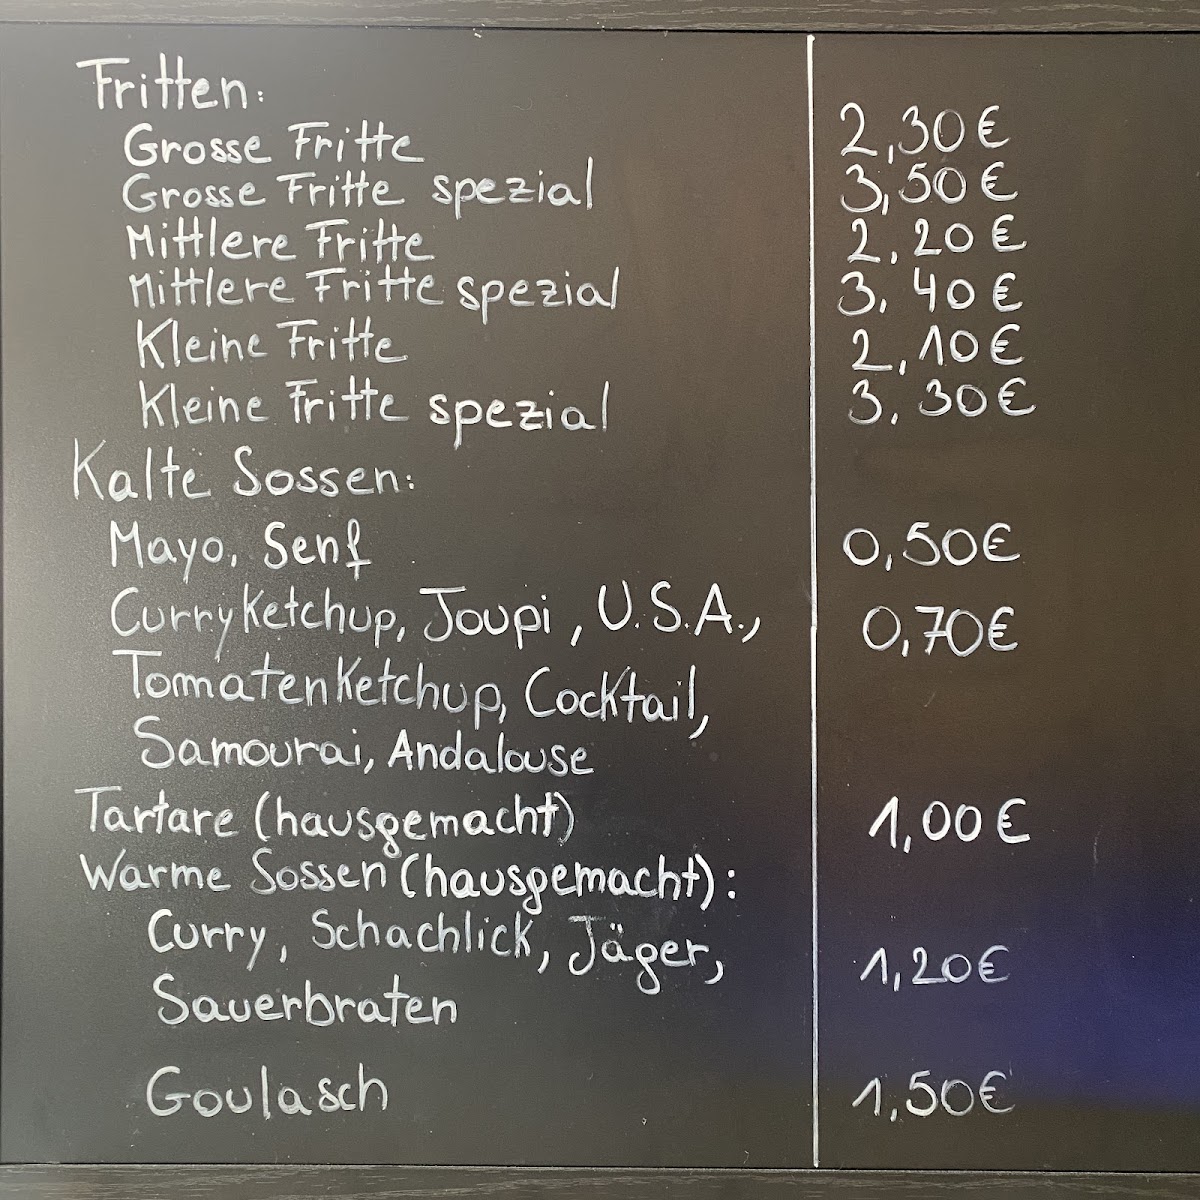 Fritten:
Grosse Fritte 2,30€
Grosse Fritte spezial 3,50€
Mittlere Fritte 2,20€
Mittlere Fritte spezial 3,40€
Kleine Fritte 2,10€
Kleine Fritte spezial 3,30€
Kalte Sossen:
Mayo, Senf 0,50€
CurryKetchup, Joupi, U.S.A., 0,70€
TomatenKetchup, Cocktail,
Samourai, Andalouse
Tartare (hausgemacht) 1,00€
Warme Sossen (hausgemacht):
Curry, Schachlick, Jäger, 1,20€
Sauerbraten
Goulasch 1,50€